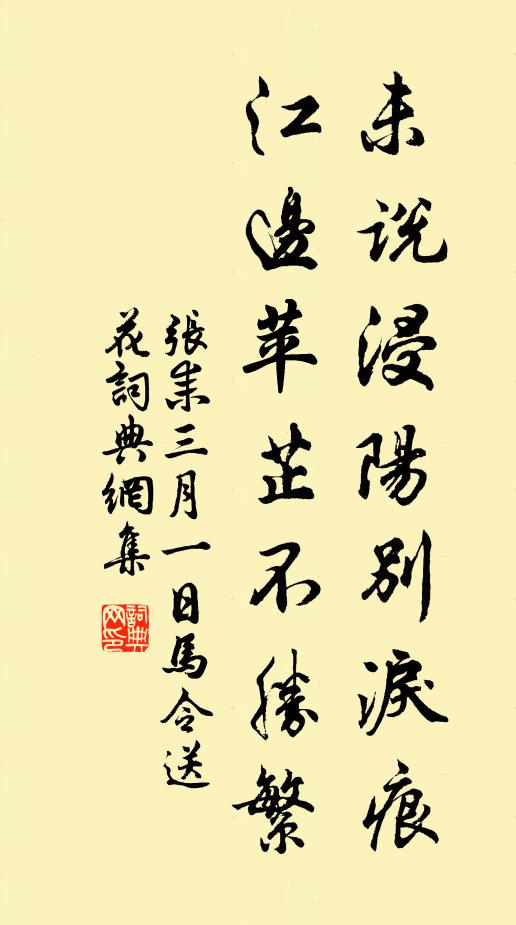 未說浸陽別淚痕
江邊苹芷不勝繁
張耒三月一日馬令送
花詞典網集
詞典网印